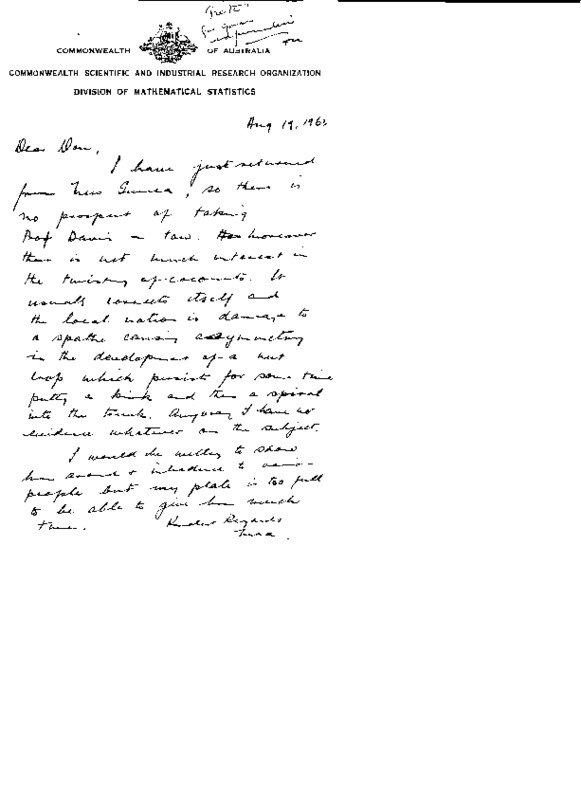 COMMONWEALTH OF AUSTRALIA
COMMONWEALTH SCIENTIFIC AND INDUSTRIAL RESEARCH ORGANIZATION
DIVISION OF MATHEMATICAL STATISTICS
Aug 19, 1963
Dear Don,
I have just returned
from New Guinea, so there is
no prospect of taking
Prof Davis in tow. moreover
there is not much interest in
the twisting of coconuts. It
usually corrects itself and
the local notion is damage to
a spathe causing assymmetry
in the development of a nut
crop which persists for some time
putting a kink and then a spiral
into the trunk. Anyway I have no
evidence whatever on the subject.
I would be willing to show
him around & introduce to
people but my plate is too full
to be able to give him much
time. Kindest Regards